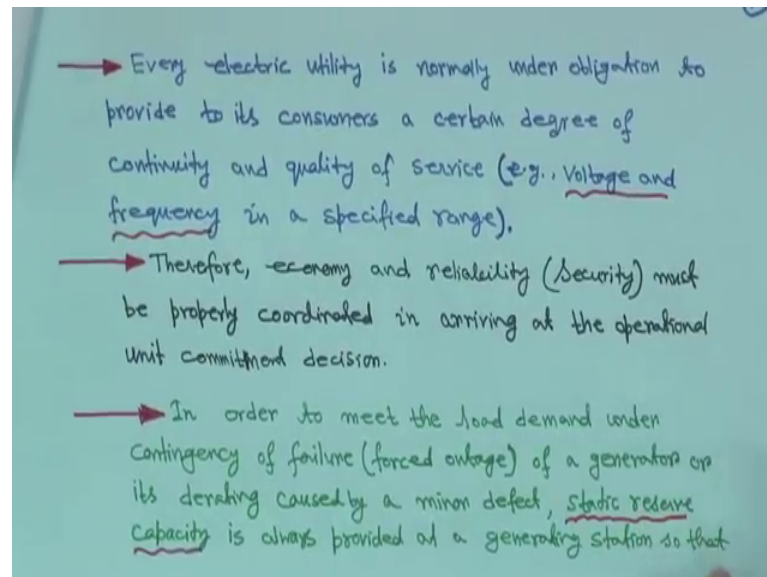 Every electric utility is normally under obligation to
provide to its consumers a certain degree of
continuity and quality of service (e.g., Voltage and
frequency in a specified range).
Therefore, economy and reliability (Security) must
be properly coordinated in arriving at the operational
unit commitment decision.
In order to meet the load demand under
Contingency of failure (forced outage) of a generator or
its derating caused by a minor defect, static reserve
capacity is always provided at a generating station so that